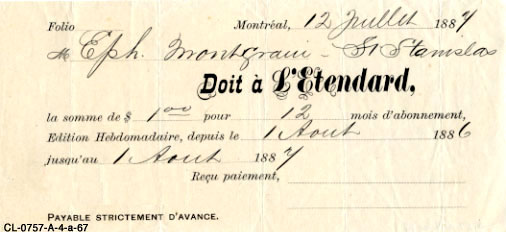 Folio Montréal, 12 Juillet 1887
M Eph. Montgrain - St Stanislas
Doit à L'Etendard,
la somme de $ 1 00 pour 12 mois d'abonnement,
Edition Hebdomadaire, depuis le 1 Aout 1886
jusqu'au 1 Aout 1887
Reçu paiement,
PAYABLE STRICTEMENT D'AVANCE.
CL-0757-A-4-a-67